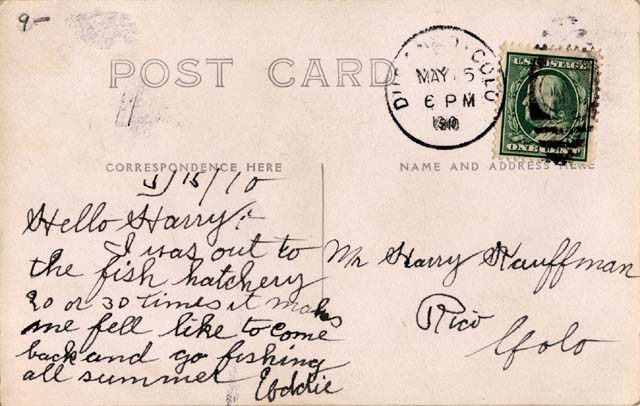 9-
POST CARD
DURANGO, COLO
MAY 5
6 PM
1910
U.S. POSTAGE
ONE CENT
CORRESPONDENCE HERE
NAME AND ADDRESS HERE
5/15/10
Hello Harry:-
I was out to
the fish hatchery
20 or 30 times it makes
me fell like to come
back and go fishing
all summer Eddie
Mr Harry Kauffman
Rico
Colo